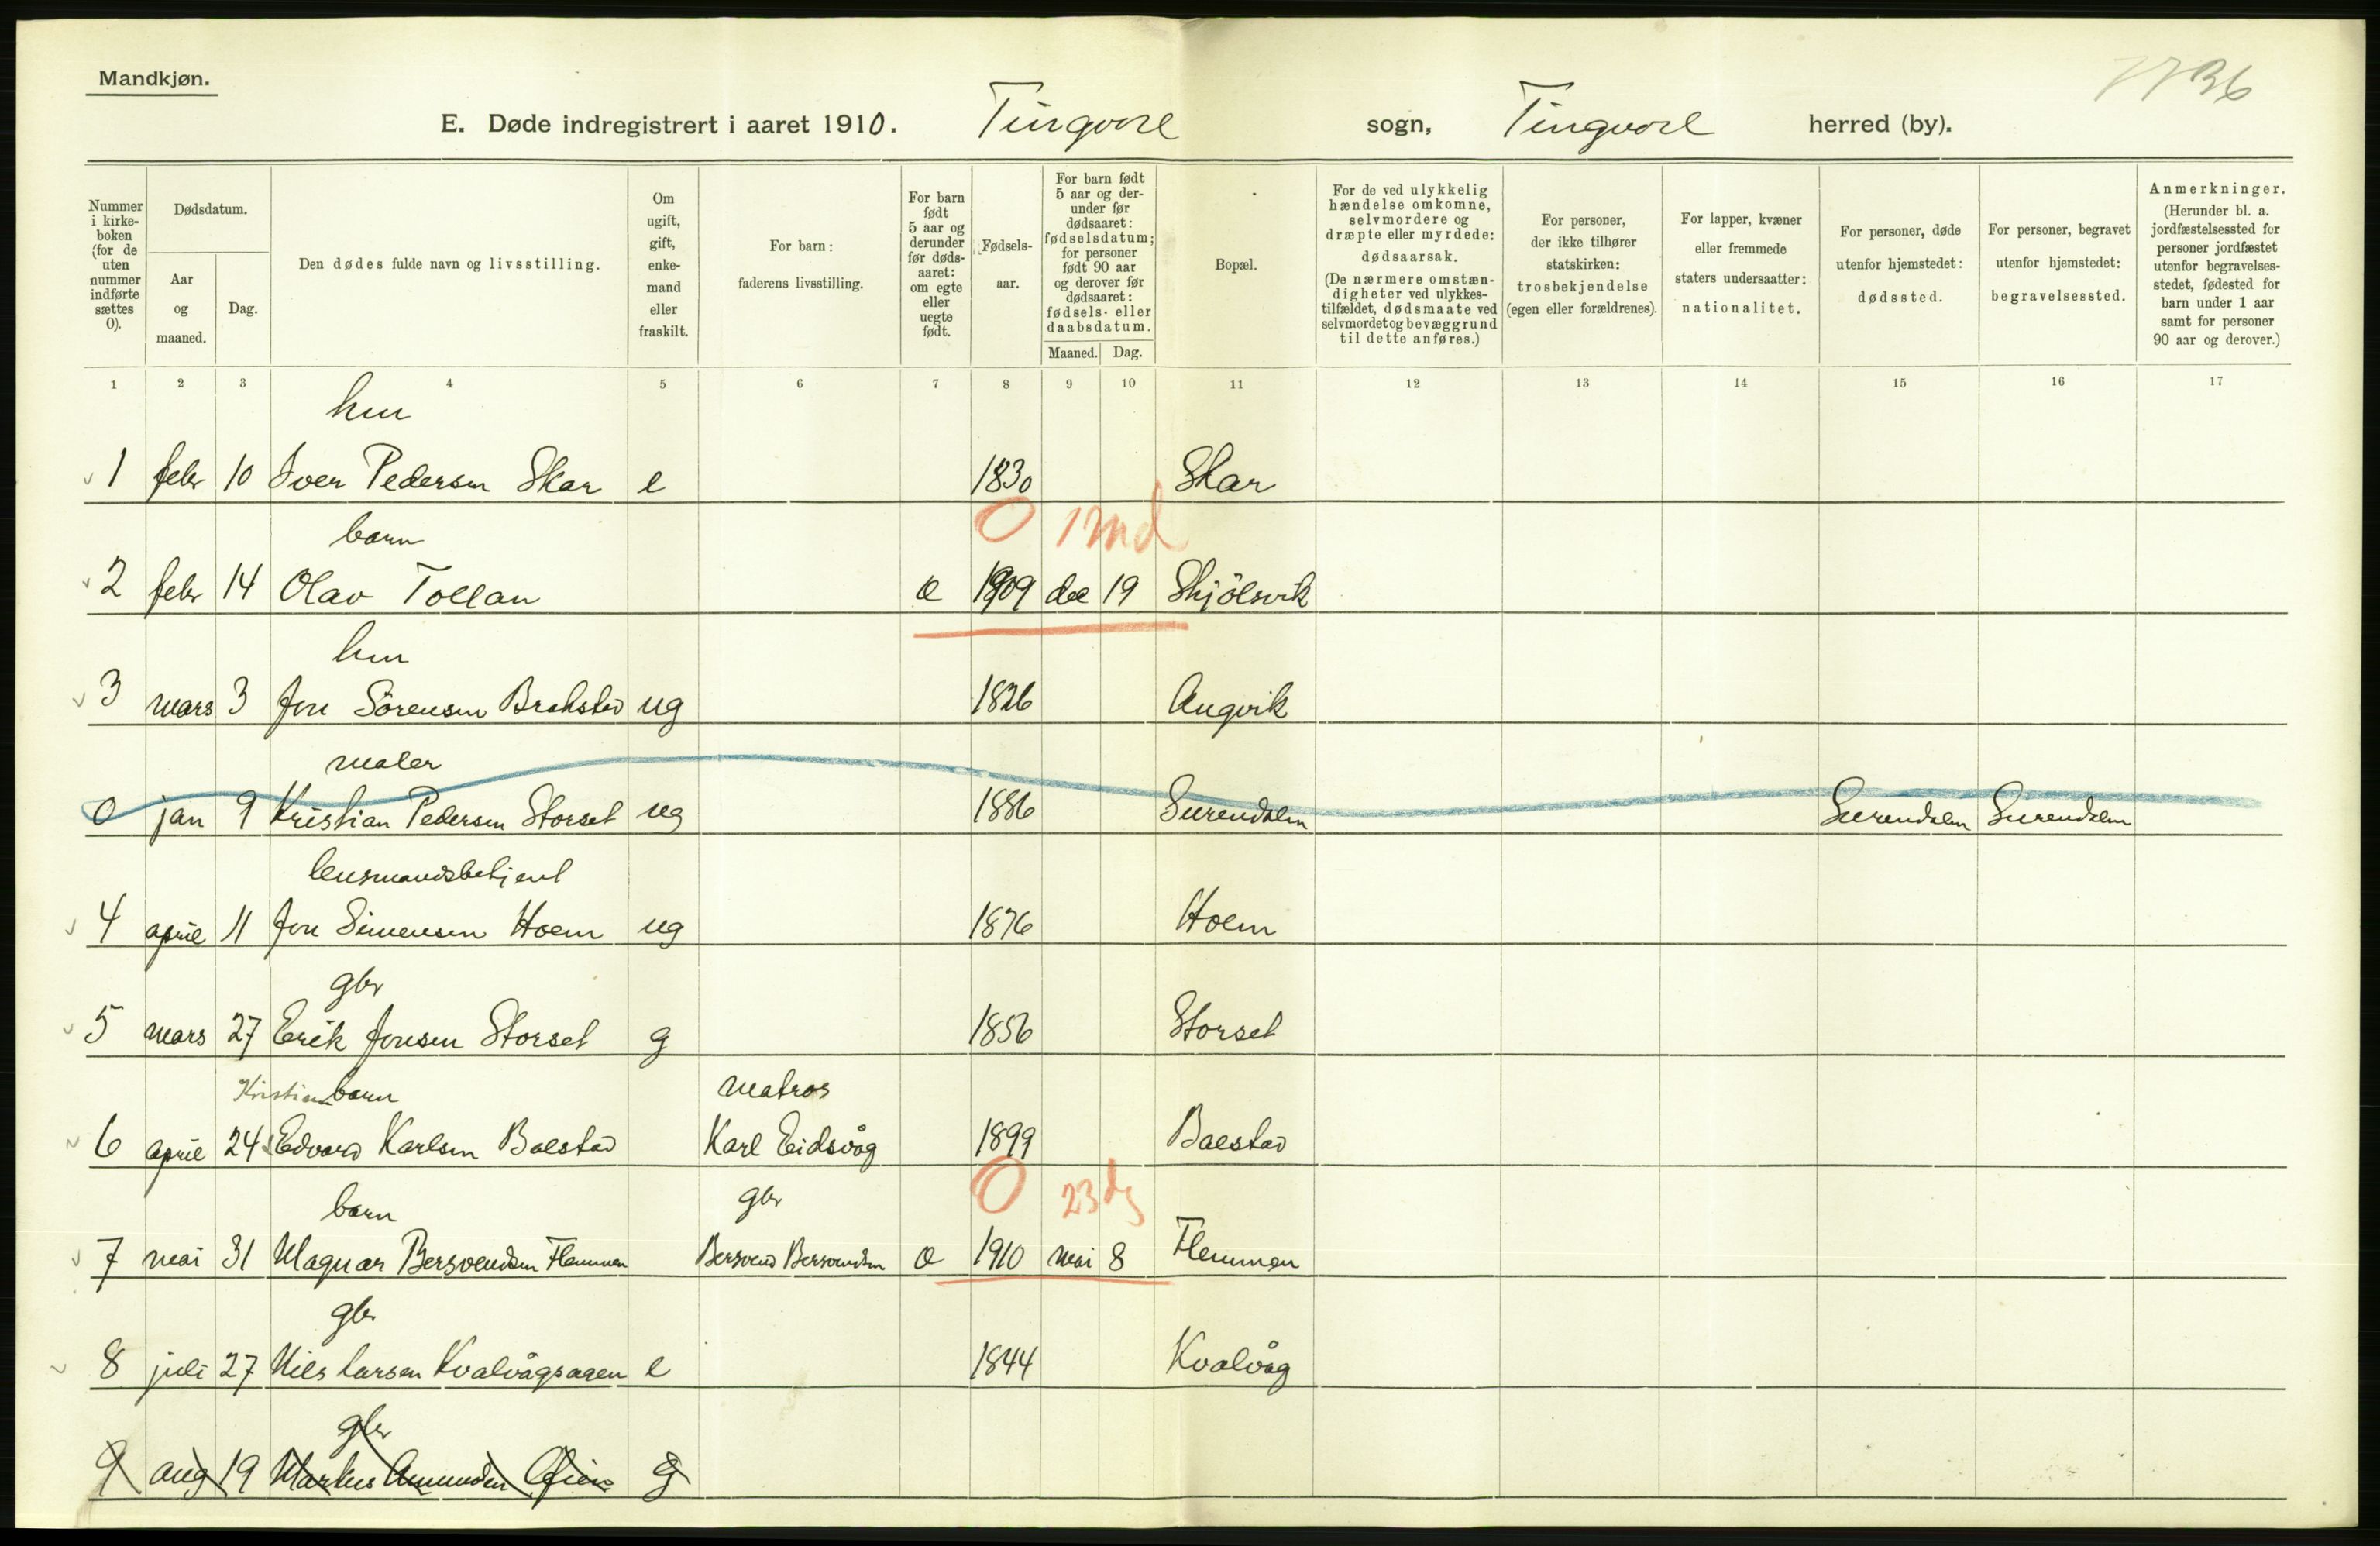 Mandkjøn.
7736
E. Døde indregistrert i aaret 1910. Tingvoll sogn, Tingvoll herred (by).
Nummer i kirke-boken (for de uten nummer indførte sættes 0).
Dødsdatum.
Aar og maaned.
Dag.
Den dødes fulde navn og livsstilling.
Om ugift, gift, enke-mand eller fraskilt.
For barn: faderens livsstilling.
For barn født 5 aar og derunder før døds-aaret: om egte eller uegte født.
Fødsels-aar.
For barn født 5 aar og der-under før dødsaaret: fødselsdatum; for personer født 90 aar og derover før dødsaaret: fødsels- eller daabsdatum.
Maaned. Dag.
Bopæl.
For de ved ulykkelig hændelse omkomne, selvmordere og dræpte eller myrdede: dødsaarsak.
(De nærmere omstæn-digheter ved ulykkes-tilfældet, dødsmaate ved selvmord et og bevæggrund til dette anføres.)
For personer, der ikke tilhører statskirken: trosbekjendelse (egen eller forældrenes).
For lapper, kvæner eller fremmede staters undersaatter: nationalitet.
For personer, døde utenfor hjemstedet: dødssted.
For personer, begravet utenfor hjemstedet: begravelsessted.
Anmerkninger.
(Herunder bl. a. jordfæstelsessted for personer jordfæstet utenfor begravelses-stedet, fødested for barn under 1 aar samt for personer 90 aar og derover.)
1 2 3 4 5 6 7 8 9 10 11 12 13 14 15 16 17
hm
1 febr 10 Iver Pedersen Skar e 1830 Skar
0 1 md
barn
2 febr 14 Olav Tollan e 1909 de 19 Skjölsvik
hm
3 mars 3 Jon Sörensen Brakstad ug 1826 Angvik
maler
0 jan 9 Kristian Pedersen Storset ug 1886 Surendalen Surendalen Surendalen
lensmandsbetjent
4 april 11 Jon Simensen Hoem ug 1876 Hoem
gbr
5 mars 27 Erik Jonsen Storset g 1856 Storset
Kristian barn matros
6 april 24 Edvard Karlsen Balstad Karl Eidsvåg 1899 Balstad
0 23 dg
barn gbr
7 mai 31 Magnar Bersvendsen Flemmen Bersvend Bersvendsen e 1910 mai 8 Flemmen
gbr
8 juli 27 Nils Larsen Kvalvågsagen e 1844 Kvalvåg
gbr
9 aug 19 Markus Amundsen g